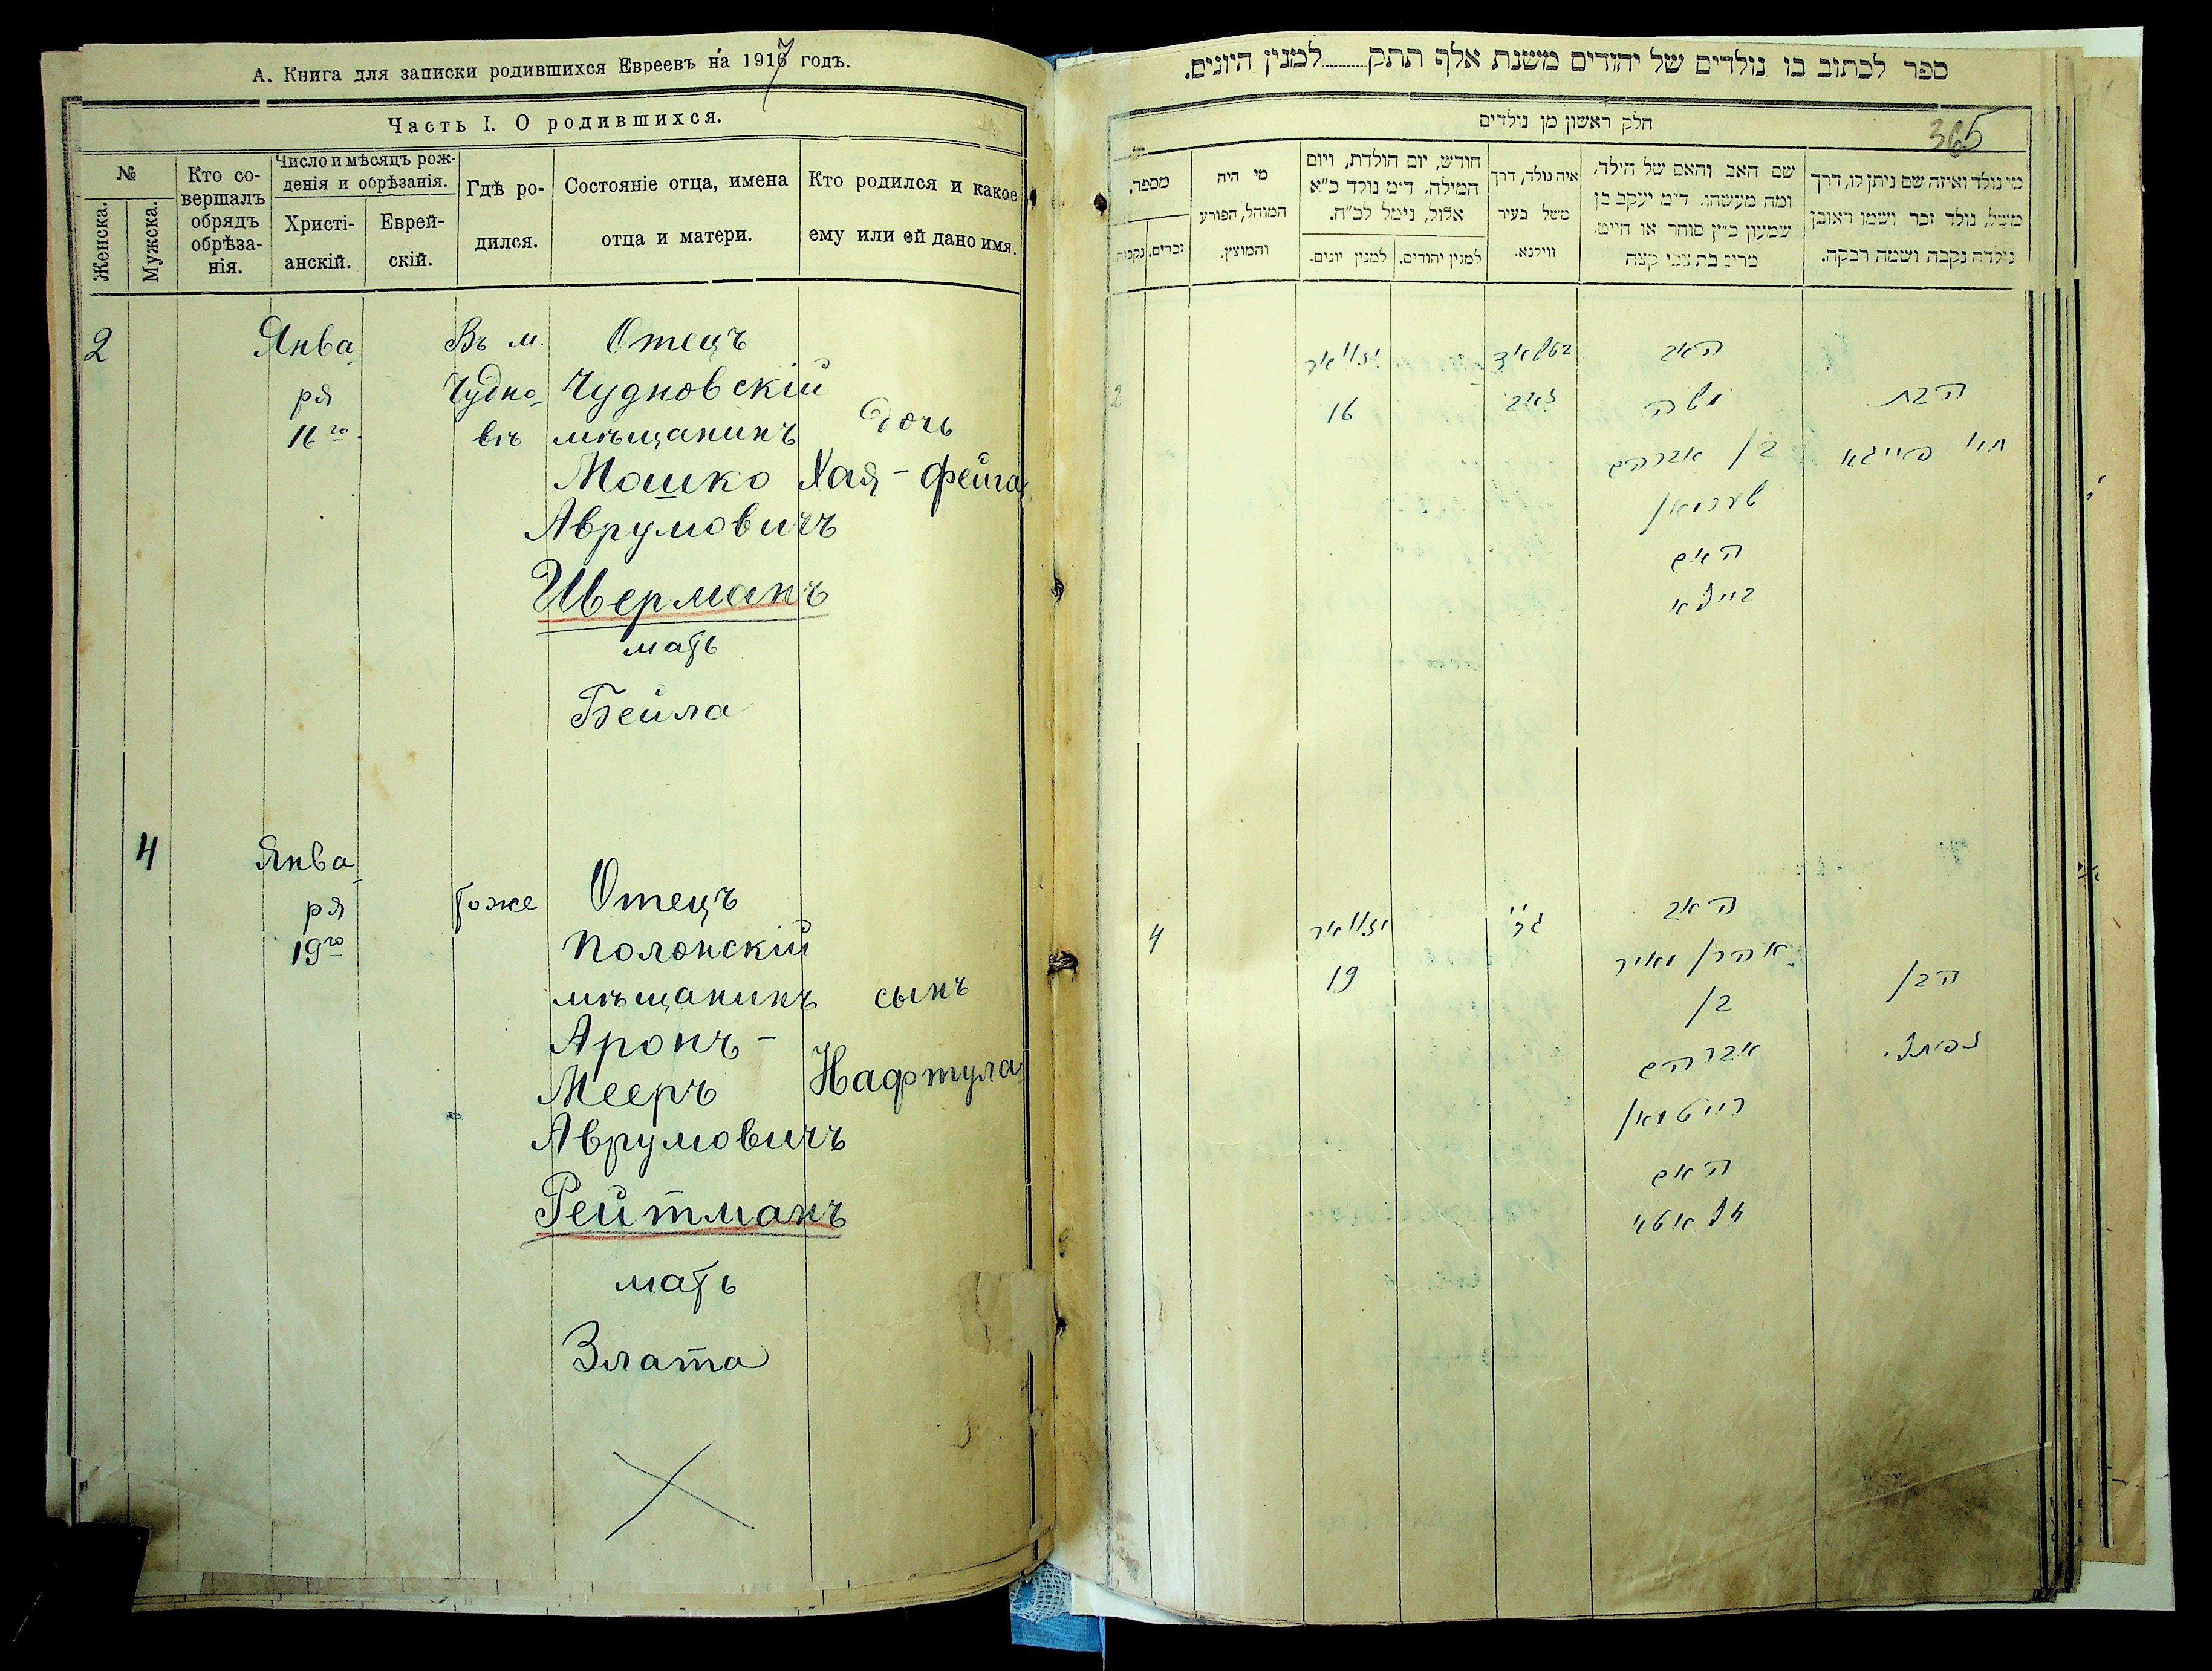 А. Книга для записки родившихся Евреевъ на 1917 годъ.
Часть I. О родившихся.
№
Женска.
Мужска.
Кто со-
вершалъ
обрядъ
обрѣза-
нія.
Число и мѣсяцъ рож-
денія и обрѣзанія.
Христі-
анскій.
Еврей-
скій.
Гдѣ ро-
дился.
Состояніе отца, имена
отца и матери.
Кто родился и какое
ему или ей дано имя.
2
Янва
ря
16го
Въ м.
Чудно-
вѣ
Отецъ
Чудновскій
мѣщанинъ
Мошко
Аврумовичъ
Шверманъ
мать
Бейла
Дочь
Хая-Фейга
4
Янва
ря
19го
тоже
Отецъ
Полонскій
мѣщанинъ
Аронъ-
Мееръ
Аврумовичъ
Рейтманъ
мать
Злата
сынъ
Нафтула
ספר לכתוב בו נולדים של יהודים משנת אלף תתק למנין היונים.
חלק ראשון מן נולדים
365
מי נולד ואיזה שם ניתן לו, דרך
משל, נולד זכר ושמו ראובן
נולדה נקבה ושמה רבקה.
שם האב והאם של הילד,
ומה מעשהו. ד״מ יעקב בן
שמעון כ״ץ סוחר או חייט,
איה נולד, דרך
משל בעיר
ווילנא.
חודש, יום הולדת, ויום
המילה. ד״מ נולד כ״א
אלול, נימל לכ״ח.
למנין יהודים.
למנין יונים.
מי היה
המוהל, הפורע
והמוצץ.
מספר.
זכרים.
נקבות
הבת
חי׳ פייגא
האב
משה
בן אברהם
האם
ביילא
ינואר
16
2
הבן
נפתלי
האב
אהרן מאיר
בן
אברהם
רייטמאן
האם
זלאטא
ינואר
19
4